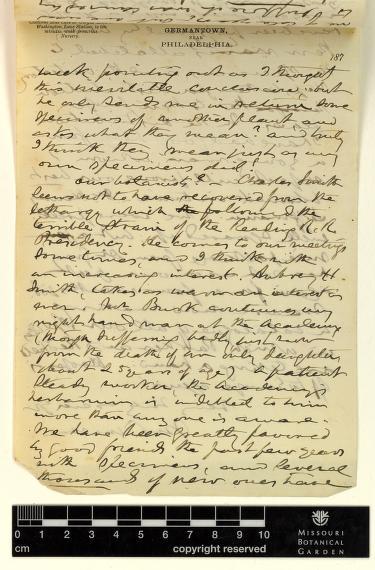 Washington Lane Station, is 100
minutes walk from the
Nursery.
GERMANTOWN,
NEAR
PHILADELPHIA,
187
week pointing out as I thought
this inevitable conclusion: but
he only sends me in return some
specimens of another plant and
asks what they mean? and truly
I think they mean just as my
own specimens did!
Our botanists? - Charles Smith
seems not to have recovered from the
lethargy which the followed the
terrible strain of the Reading R.R.
Presidency. He comes to our meetings
sometimes, and I think with
an increasing interest. Aubrey H.
Smith, takes as warm an interest as
ever. Mr. Burk continues my
right hand man at the Academy
(though suffering badly just now
from the death of an only daughter
about 25 years of age) a patient
steady worker, the Academy's
herbarium is indebted to him
more than any one is aware.
We have been greatly favored
by good friends the past few years
with specimens, and several
thousand of new ones have
0 1 2 3 4 5 6 7 8 9 10
cm
copyright reserved
MISSOURI
BOTANICAL
GARDEN